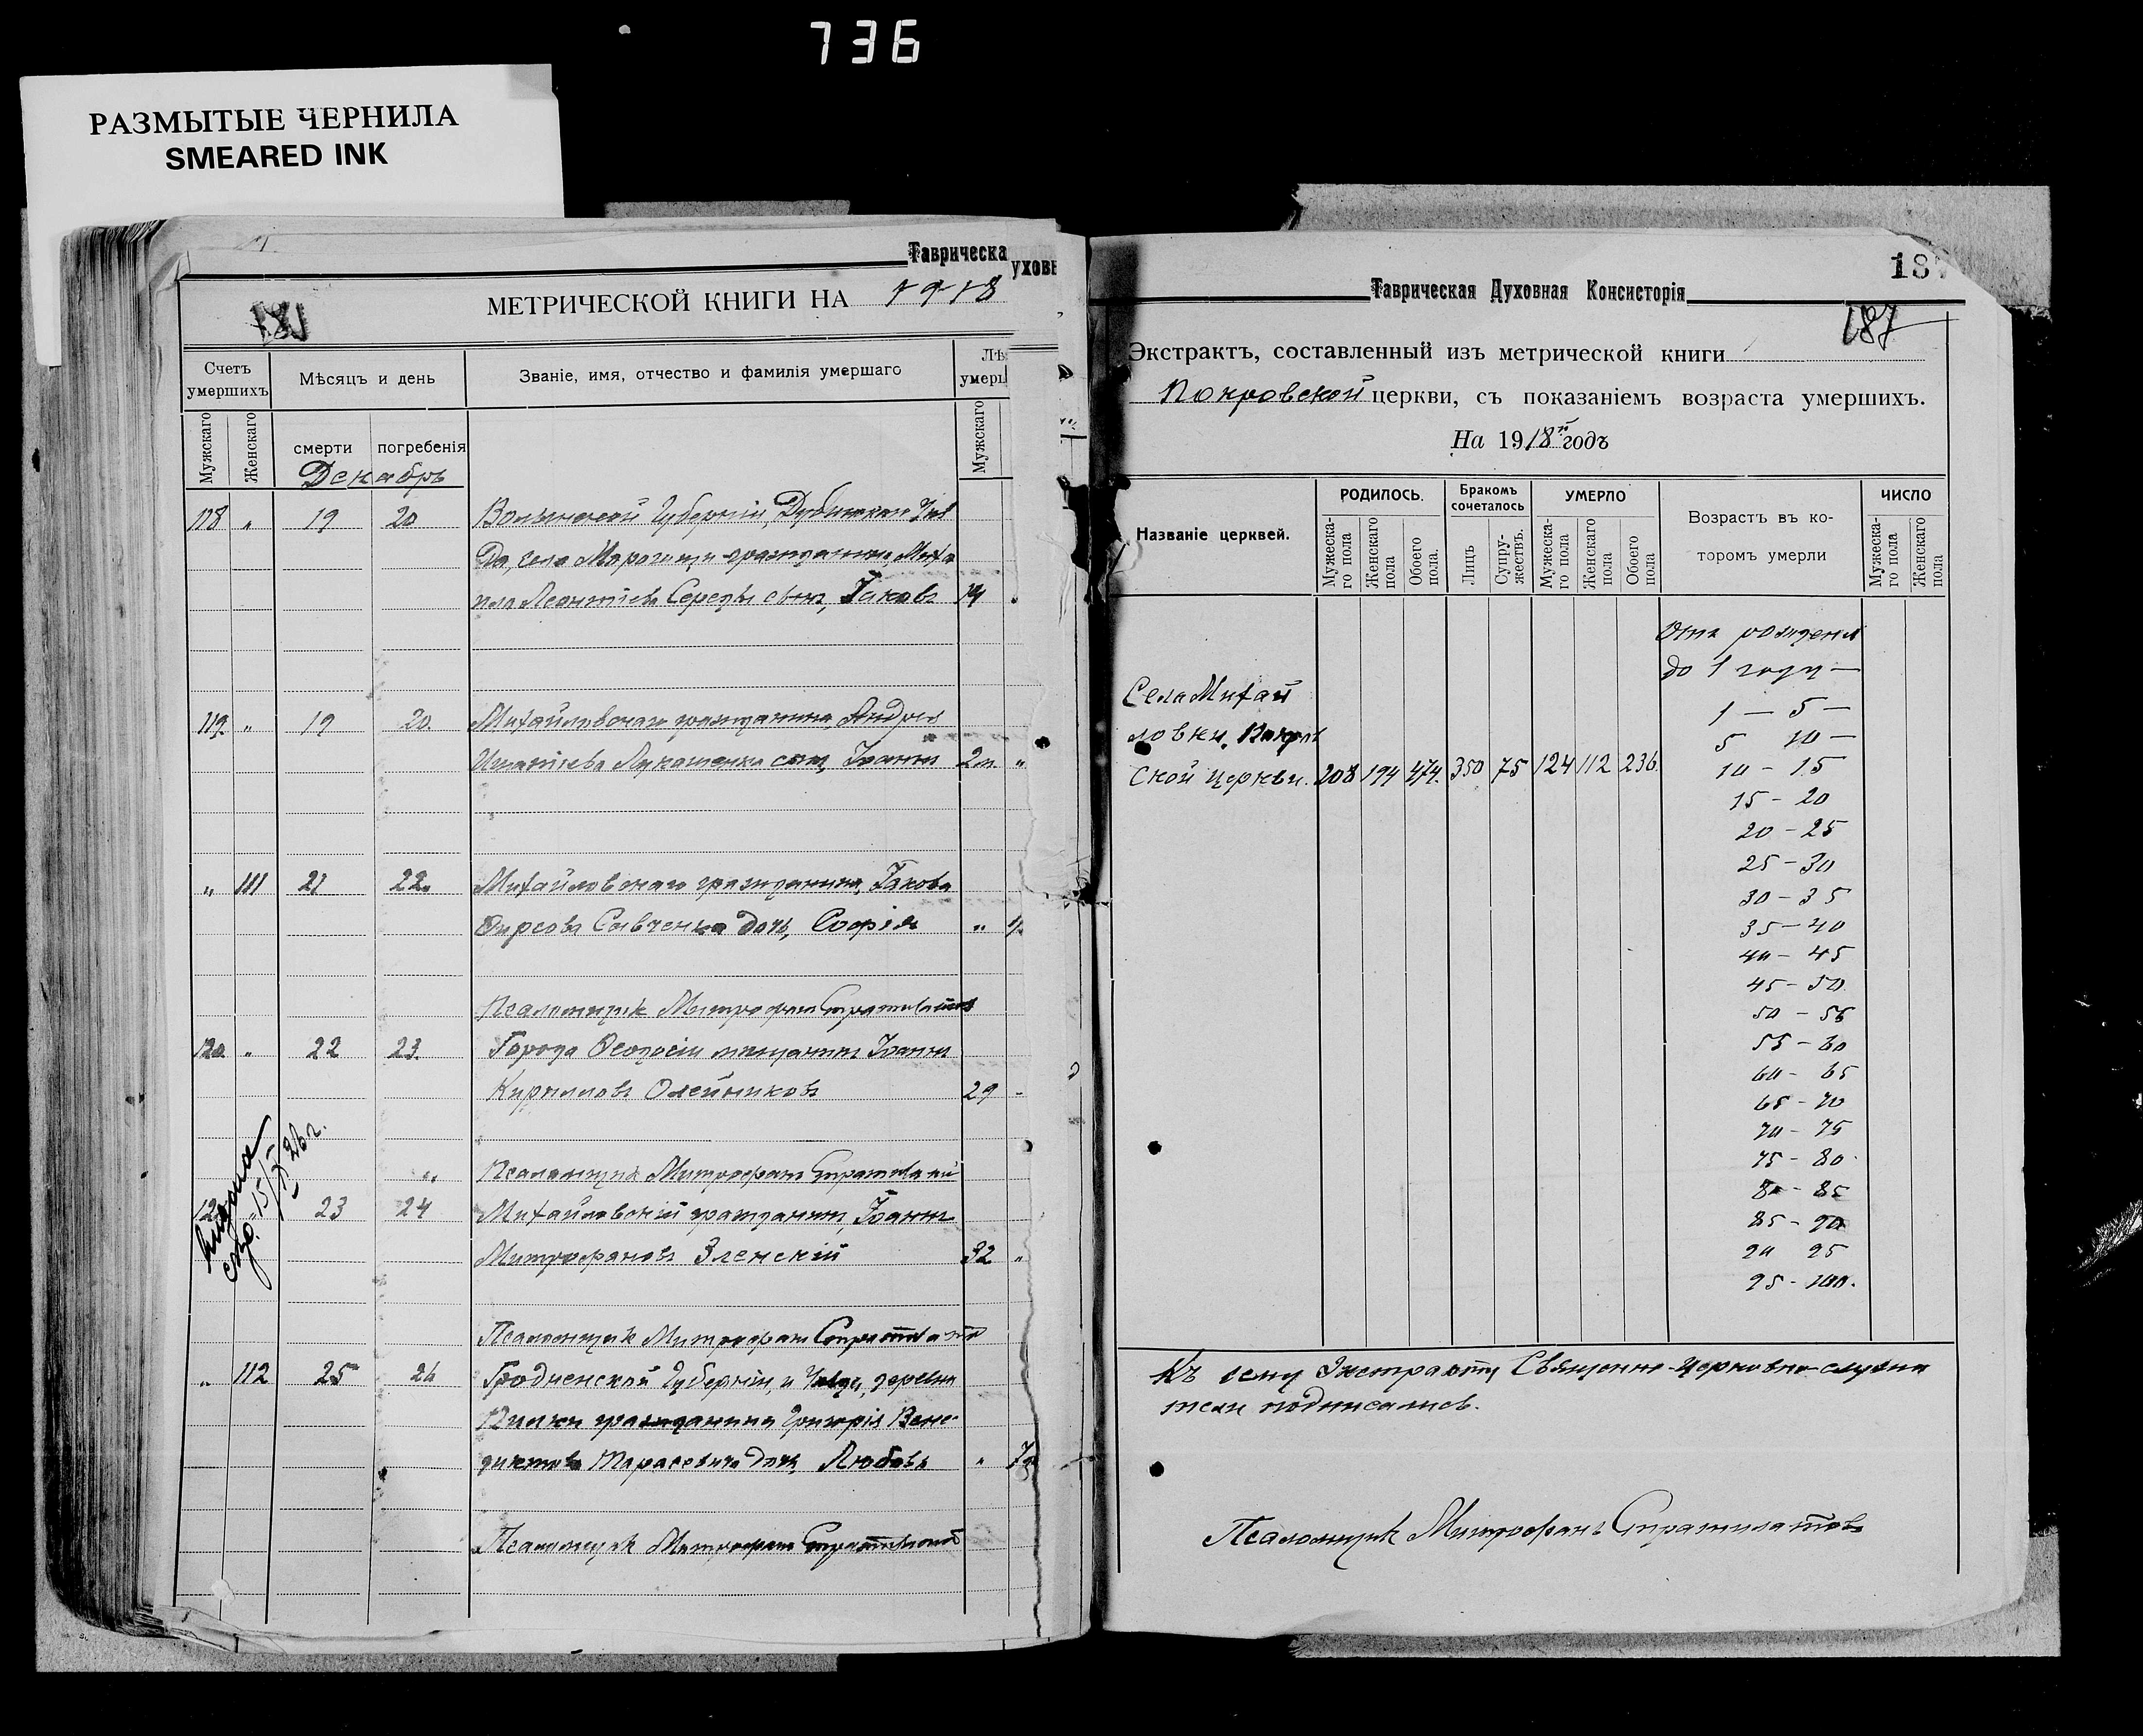 736
РАЗМЫТЫЕ ЧЕРНИЛА
SMEARED INK
Таврическа
уховн
МЕТРИЧЕСКОЙ КНИГИ НА 1918
Счетъ умершихъ
Мѣсяцъ и день
Званіе, имя, отчество и фамилія умершаго
Лѣ
умерш
Мужскаго
Женскаго
смерти
погребенія
Мужскаго
Декабрь
118 " 19 20 Волынской Губерніи, Дубенскаго Уѣз
да, села гражданина Миха
ила Леонтіева Середы сынъ, Іаковъ
119 " 19 20 Михайловскаго гражданина, Андрея
Игнатіева Лукашенка сынъ, Іоаннъ 2 м. "
" 111 21 22 Михайловскаго гражданина, Іакова
Фирсова Савченка дочь, Софія "
Псаломщикъ Митрофанъ
120 " 22 23 Города Ѳеодосіи мѣщанинъ Іоаннъ
Кирилловъ Олейниковъ 29
Псаломщикъ Митрофанъ
23 24 Михайловскій гражданинъ, Іоаннъ
Митрофановъ Зленскій 32 "
выдана
15/IX 26 г.
Псаломщикъ Митрофанъ
" 112 25 26 Гродненской Губерніи, и Уѣзда, деревни
гражданина Григорія Вене-
диктова Тарасевича дочь, Любовь "
Псаломщикъ Митрофанъ
187
Таврическая Духовная Консисторія
187
Экстрактъ, составленный изъ метрической книги
Покровской церкви, съ показаніемъ возраста умершихъ.
На 1918й годъ
Названіе церквей.
РОДИЛОСЬ.
Бракомъ сочеталось
УМЕРЛО
Возрастъ въ ко-
торомъ умерли
ЧИСЛО
Мужеска-го пола
Женскаго пола
Обоего пола.
Лицъ
Супру-жествъ.
Мужеска-го пола
Женскаго пола
Обоего пола
Мужеска-го пола
Женскаго пола
Отъ рожденія
до 1 года —
Села Михай
ловки, Покров
ской церкви. 208 194 474. 350 75 124 112 236.
1 — 5 —
5 10 —
10 - 15
15 - 20
20 - 25
25 - 30
30 - 35
35 - 40
40 - 45
45 - 50
50 - 55
55 - 60
60 - 65
65 - 70
70 - 75
75 - 80
80 - 85
85 - 90
90 95
95 - 100.
Къ сему Экстракту Священно-церковно-служи
тели подписались.
Псаломщикъ Митрофанъ